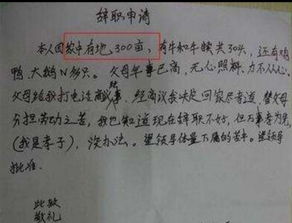 辞职申请
本人因家中有地300亩，有牛和牛犊共30头，还有鸡
鸭，大鹅N多只。父母年事已高，无心照料，力不从心。
父母给我打电话商议事，经商议我决定回家尽孝道，替父母
分担劳动之苦，我也知道现在辞职不好，但万事孝为先
(我是孝子)，没办法。望领导体量下属的苦衷。望领导
批准。
此致
敬礼